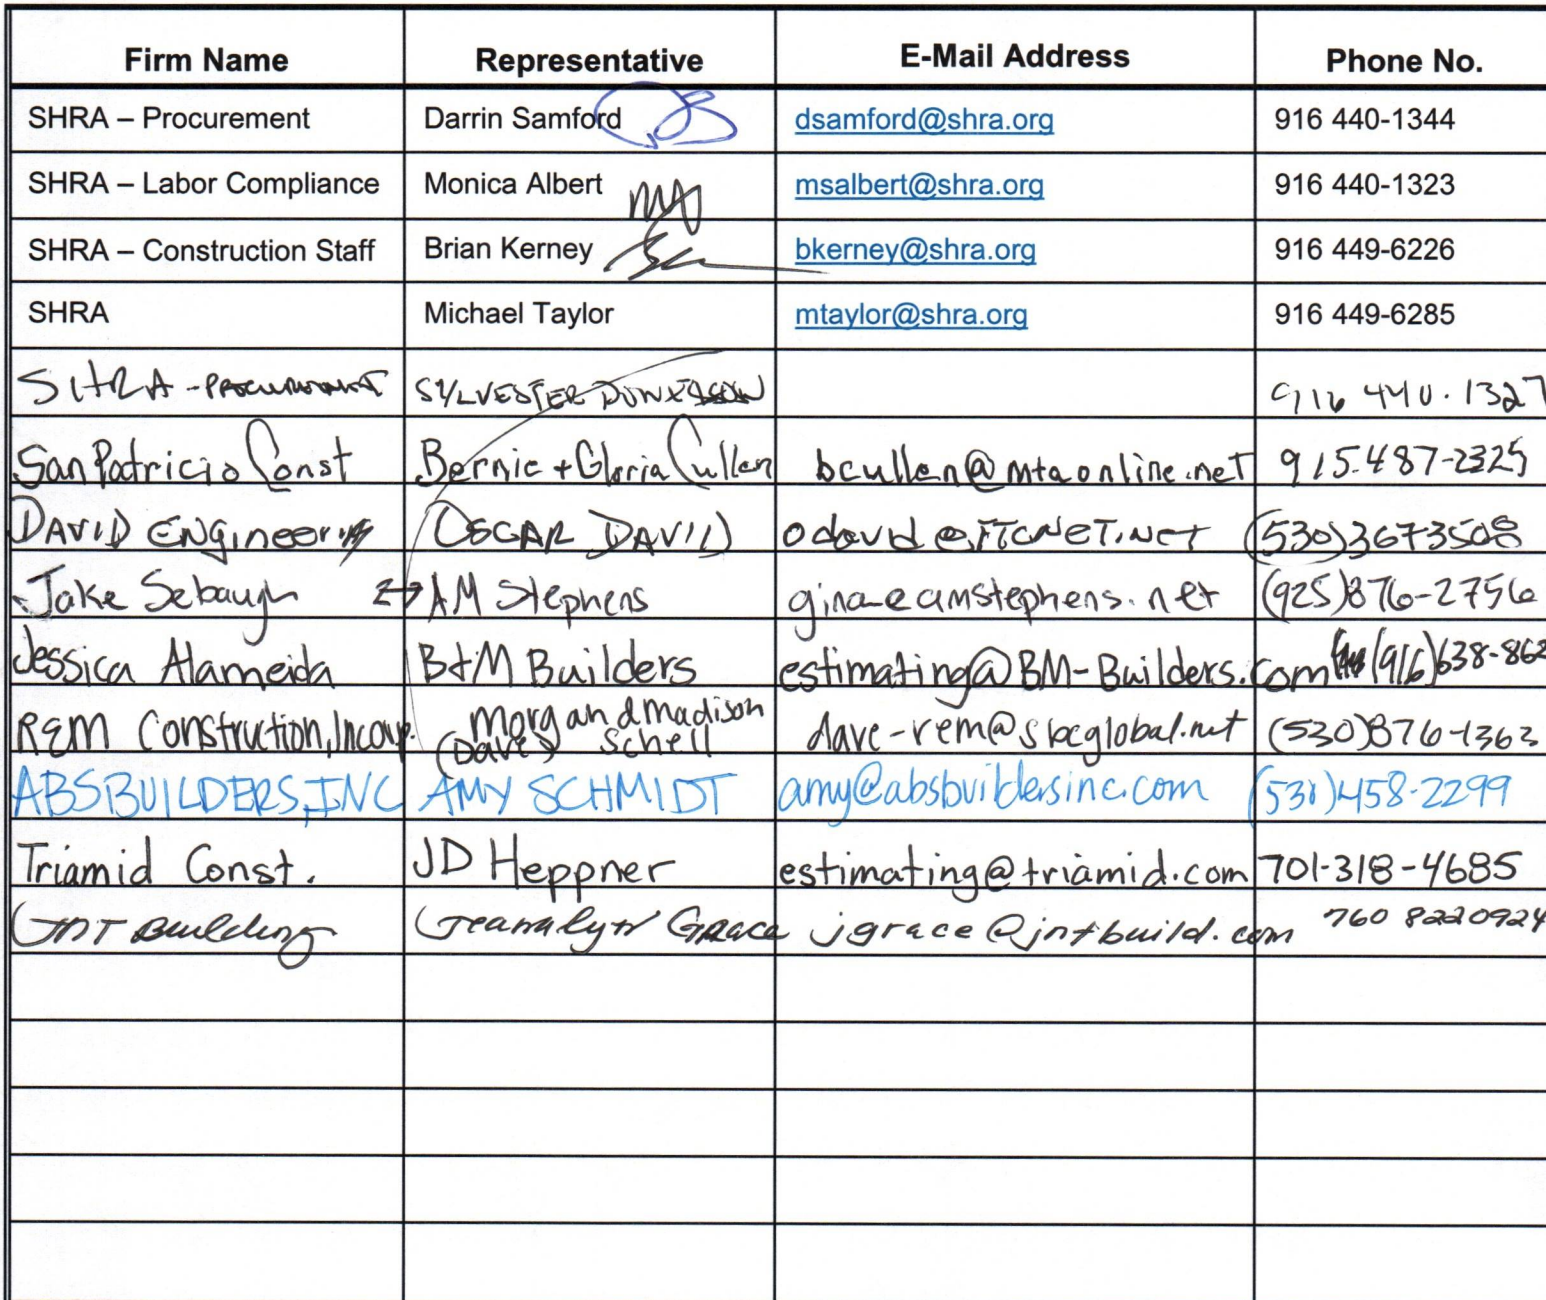 Firm Name Representative E-Mail Address Phone No.
SHRA – Procurement Darrin Samford DS dsamford@shra.org 916 440-1344
SHRA – Labor Compliance Monica Albert MA msalbert@shra.org 916 440-1323
SHRA – Construction Staff Brian Kerney bkerney@shra.org 916 449-6226
SHRA Michael Taylor mtaylor@shra.org 916 449-6285
SHRA - PROCUREMENT SYLVESTER 916 440.1327
San Patricio Const Bernie + Gloria Cullen bcullen@mtaonline.net 915.487-2325
DAVID ENgineering OSCAR DAVID odavid@FTCNET.NET (530)3673508
Jake Sebaugh AM Stephens gina@amstephens.net (925)876-2756
Jessica Alameida B+M Builders estimating@BM-Builders.com (916)638-862
REM Construction, Incorp. Morgan and madison
(Dave) Schell dave-rem@sbcglobal.net (530)876-1363
ABSBUILDERS, INC AMY SCHMIDT amy@absbuildersinc.com (530)458-2299
Triamid Const. JD Heppner estimating@triamid.com 701-318-4685
JNT Building Jeanalyn Grace jgrace@jntbuild.com 760 8220924